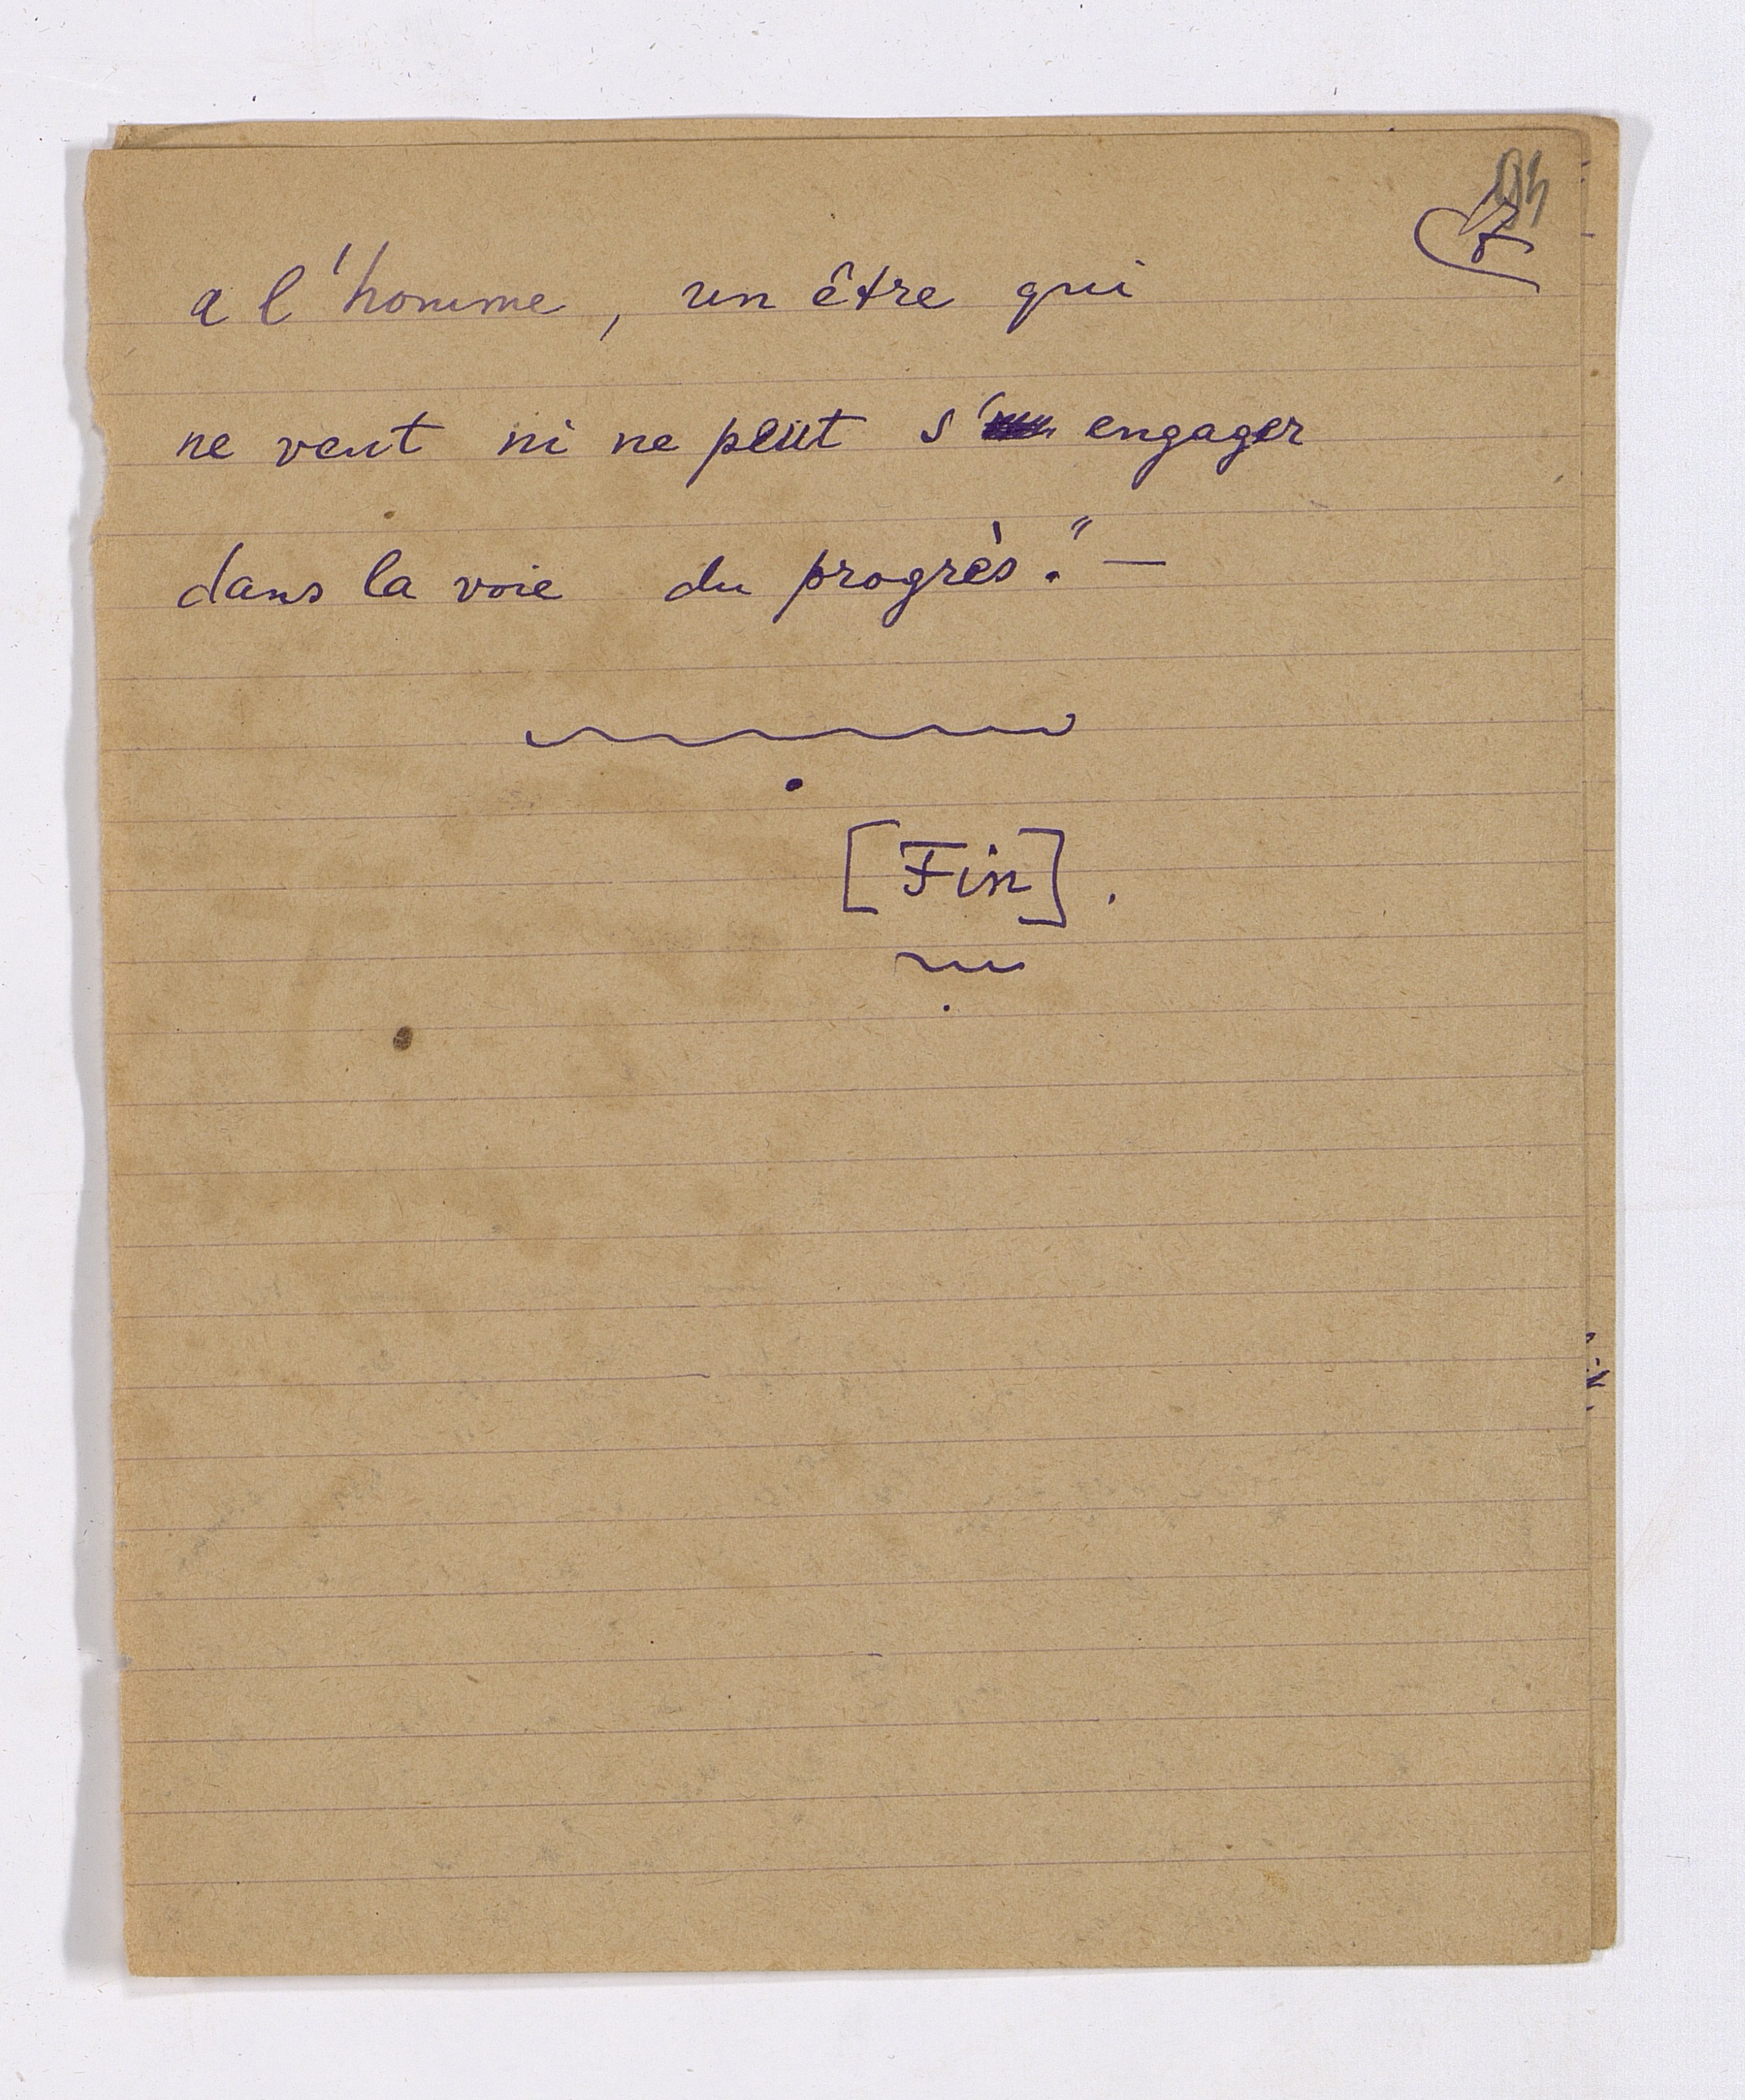 7
a l'homme, un être qui
ne veut ni ne peut s' engager
dans la voie du progrès." —
[Fin].